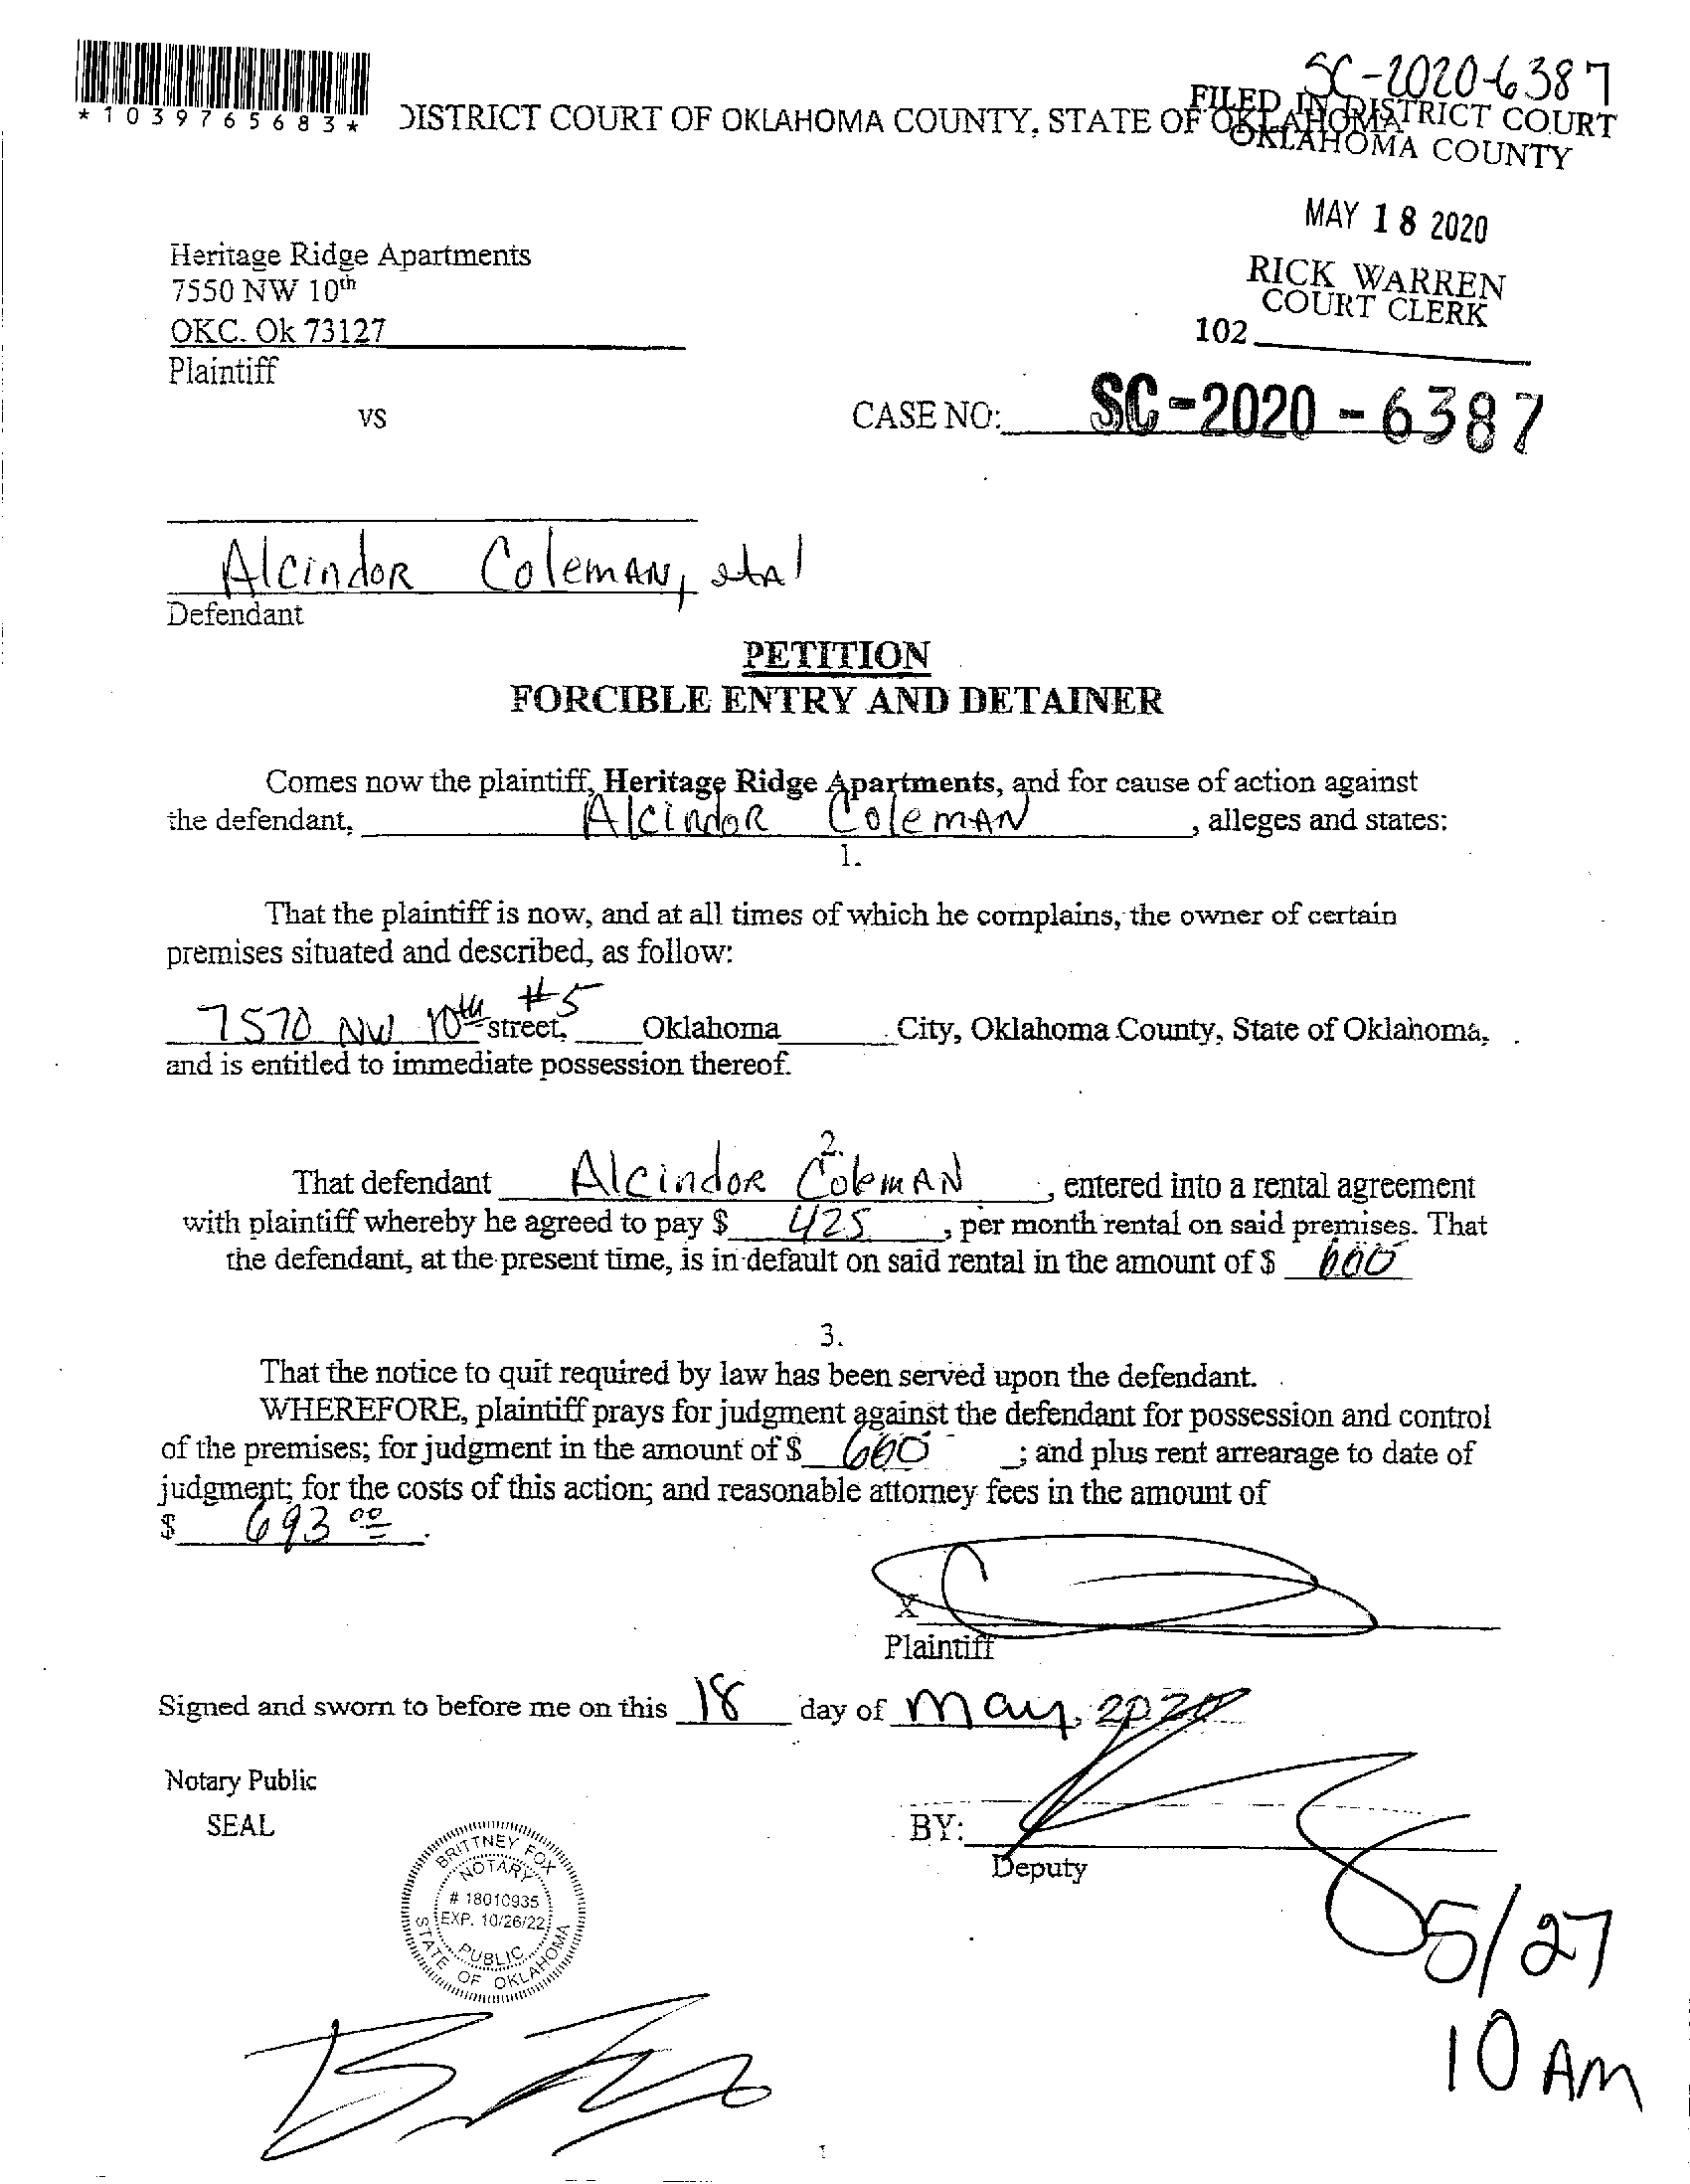 SC-2020-6387
*1039765683*
DISTRICT COURT OF OKLAHOMA COUNTY, STATE OF OKLAHOMA
FILED IN DISTRICT COURT
OKLAHOMA COUNTY
MAY 18 2020
RICK WARREN
COURT CLERK
102
Heritage Ridge Apartments
7550 NW 10th
OKC. Ok 73127
Plaintiff
vs
CASE NO: SC-2020-6387
Alcindor Coleman, etal
Defendant
PETITION
FORCIBLE ENTRY AND DETAINER
Comes now the plaintiff, Heritage Ridge Apartments, and for cause of action against
the defendant, Alcindor Coleman, alleges and states:
1.
That the plaintiff is now, and at all times of which he complains, the owner of certain
premises situated and described, as follow:
7570 NW 10th #5 street, Oklahoma City, Oklahoma County, State of Oklahoma,
and is entitled to immediate possession thereof.
2.
That defendant Alcindor Coleman, entered into a rental agreement
with plaintiff whereby he agreed to pay $ 425, per month rental on said premises. That
the defendant, at the present time, is in default on said rental in the amount of $
3.
That the notice to quit required by law has been served upon the defendant.
WHEREFORE, plaintiff prays for judgment against the defendant for possession and control
of the premises; for judgment in the amount of $ ; and plus rent arrearage to date of
judgment; for the costs of this action; and reasonable attorney fees in the amount of
$ 693 00.
X
Plaintiff
Signed and sworn to before me on this 18 day of May, 2020
Notary Public
SEAL
BRITTNEY FOX
NOTARY
# 18010935
EXP. 10/26/22
PUBLIC
STATE OF OKLAHOMA
BY:
Deputy
5/27
10 AM
1